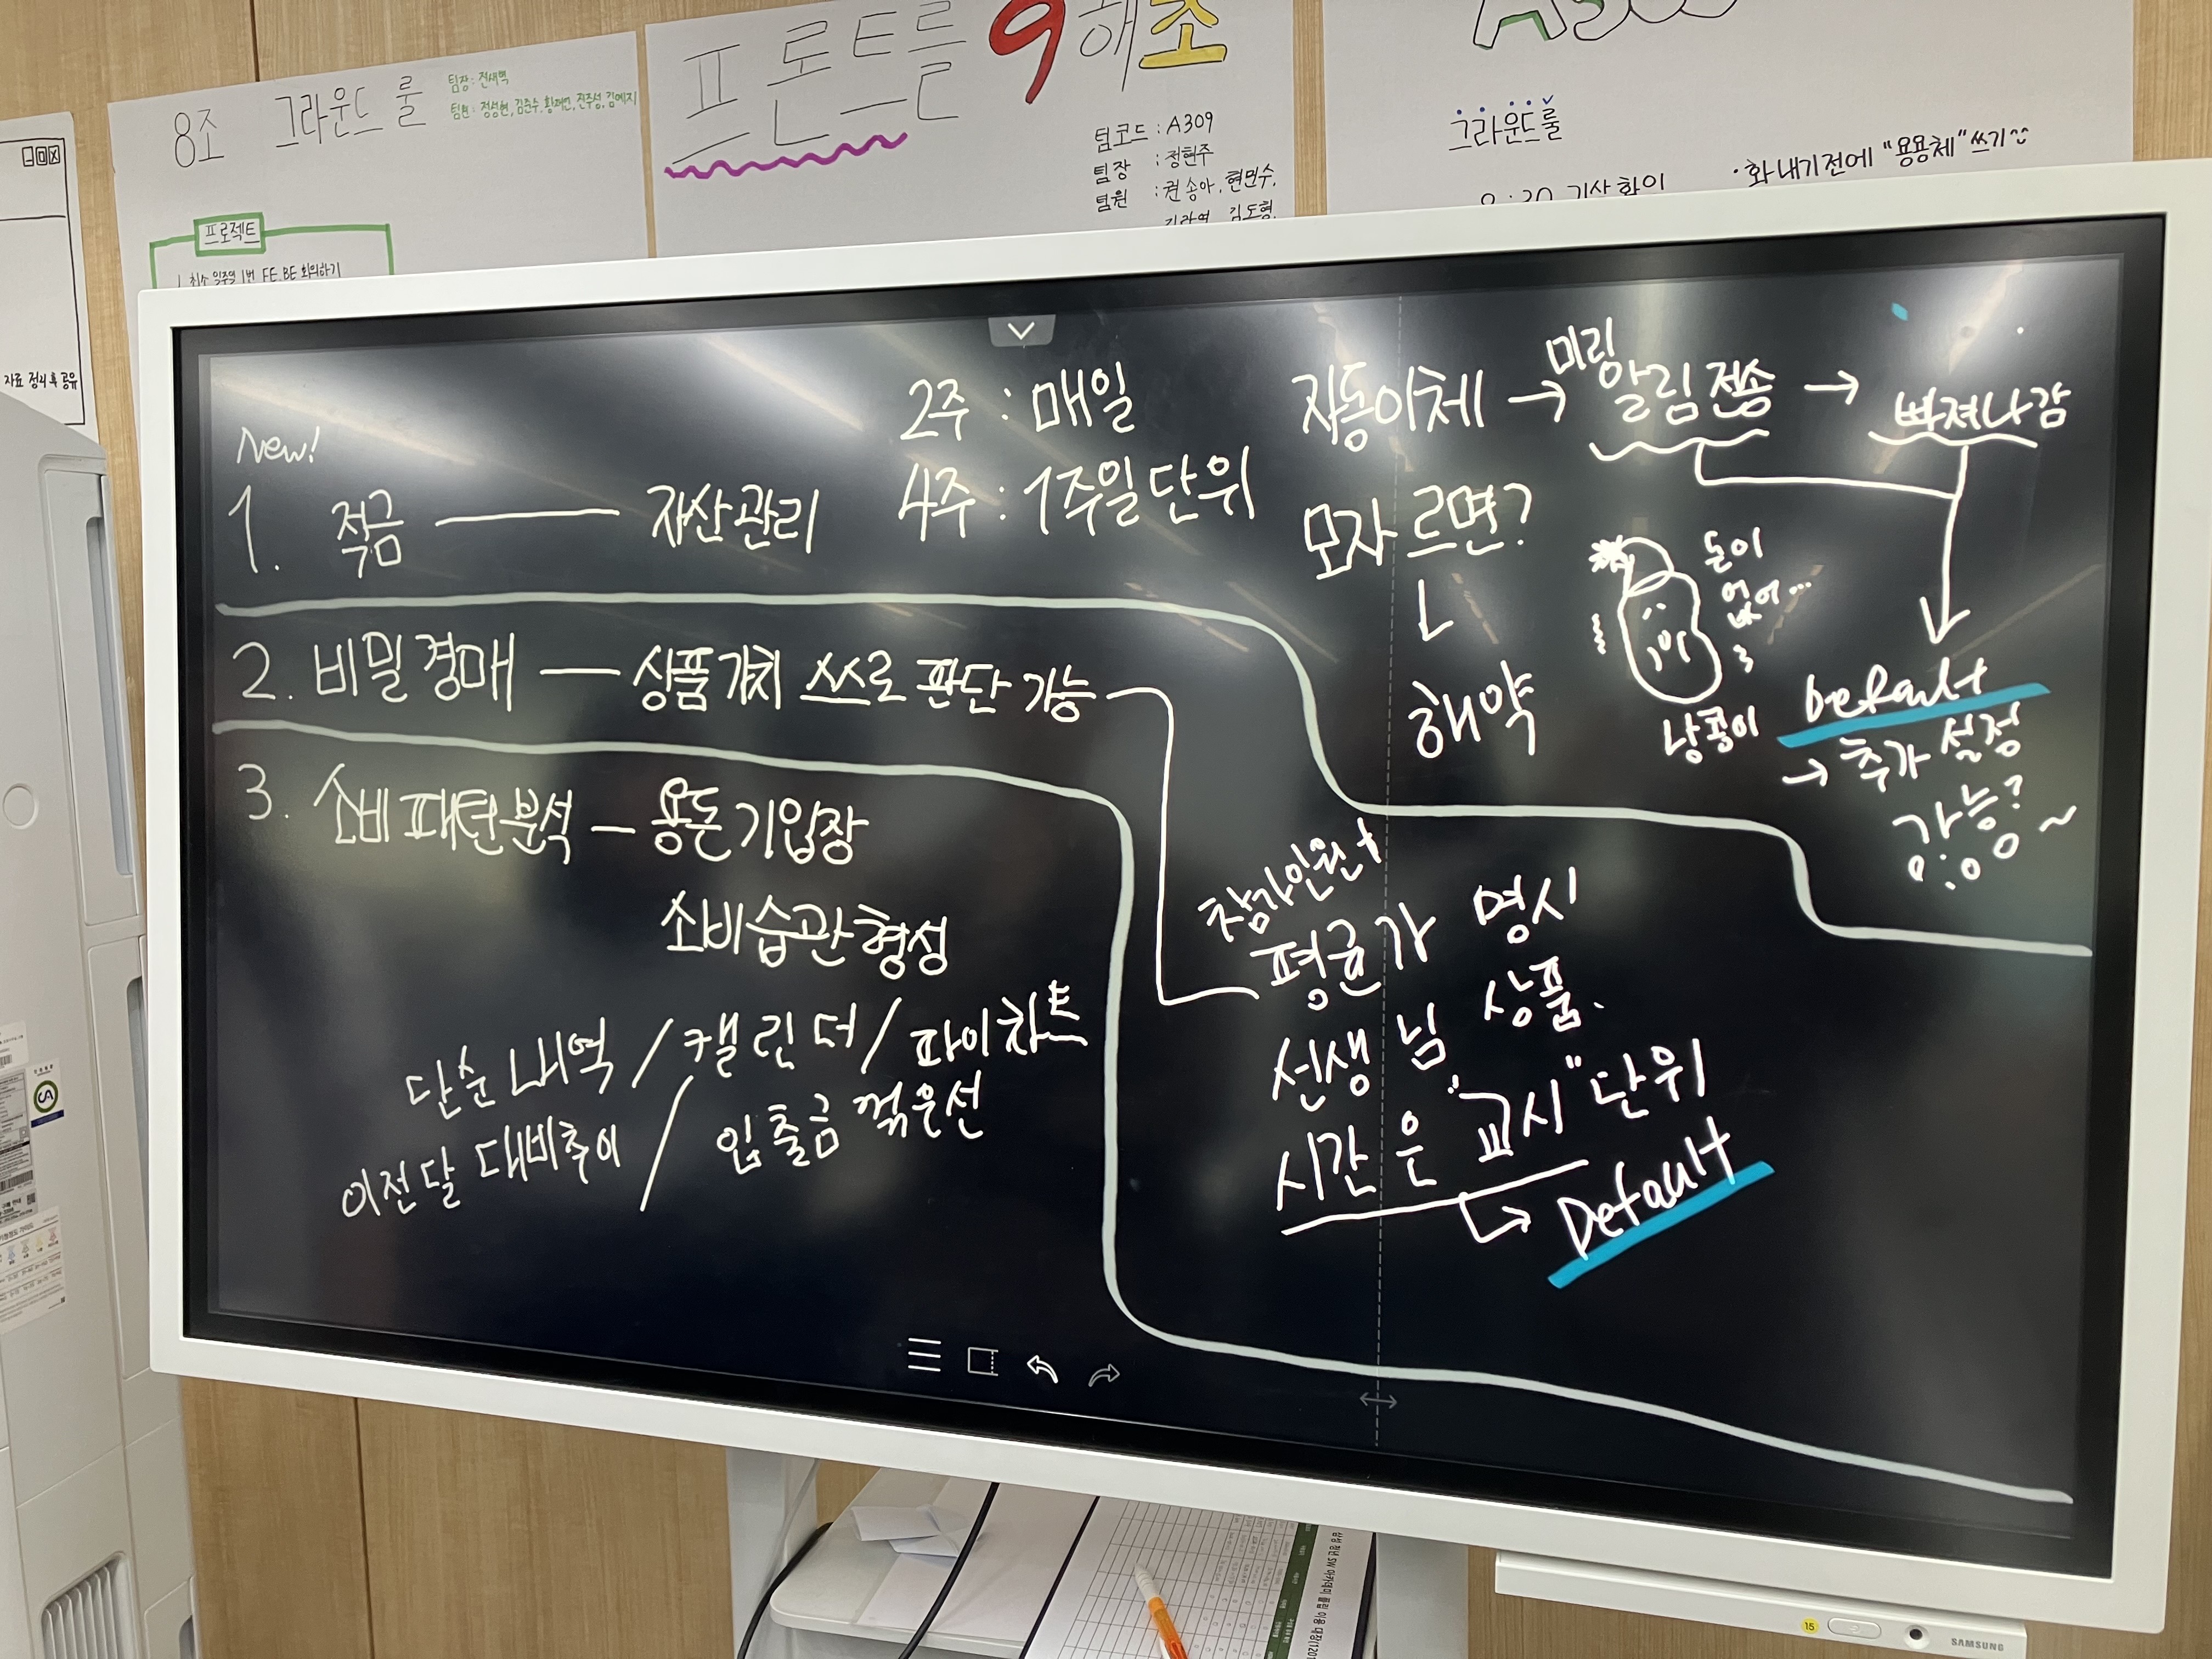 8조 그라운드 룰
팀장 : 전새벽
팀원 : 정성현, 김준수, 황재언, 진주성, 김예지
프로젝트
1. 최소 일주일 1번 FE, BE 회의하기
자료 정리 후 공유
프론트를 9해조
팀코드 : A309
팀장 : 정현주
팀원 : 권송아, 현민수,
김도형,
그라운드룰
• 화내기전에 "용용체" 쓰기^^
New!
1. 적금 — 자산관리
2주 : 매일
4주 : 1주일 단위
자동이체 → 미리 알림 전송 → 빠져나감
모자르면?
해약
돈이
없어...
낭콩이
Default
→ 추가 설정
가능? ~
2. 비밀경매 — 상품가치 스스로 판단 가능
참가인원 +
평균가 명시
선생님 상품.
시간은 "교시" 단위
Default
3. 소비패턴분석 — 용돈기입장
소비습관형성
단순내역 / 캘린더 / 파이차트
이전달 대비추이 / 입출금 꺾은선
SAMSUNG
15